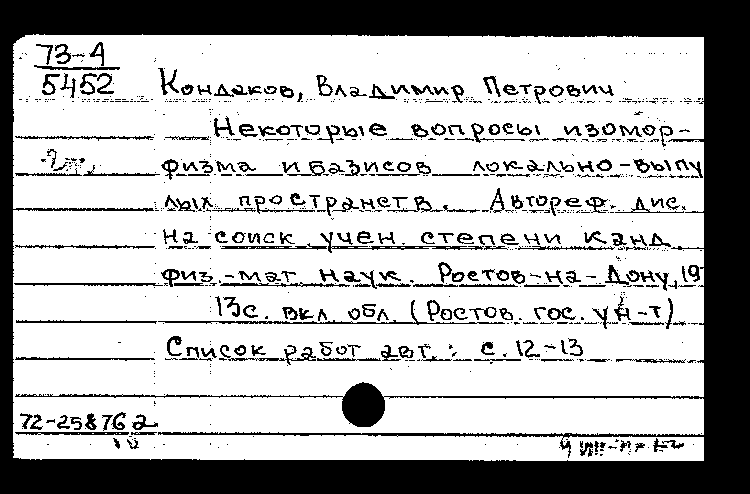 73-А
5452
Кондаков, Владимир Петрович
Некоторые вопросы изомор-
физма и базисов локально-выпу
лых пространств. Автореф. дис.
на соиск. учен. степени канд.
физ.-мат. наук. Ростов-на-Дону, 19
13с. вкл. обл. (Ростов. гос. ун-т)
Список работ авт.: с. 12-13
72-25876а